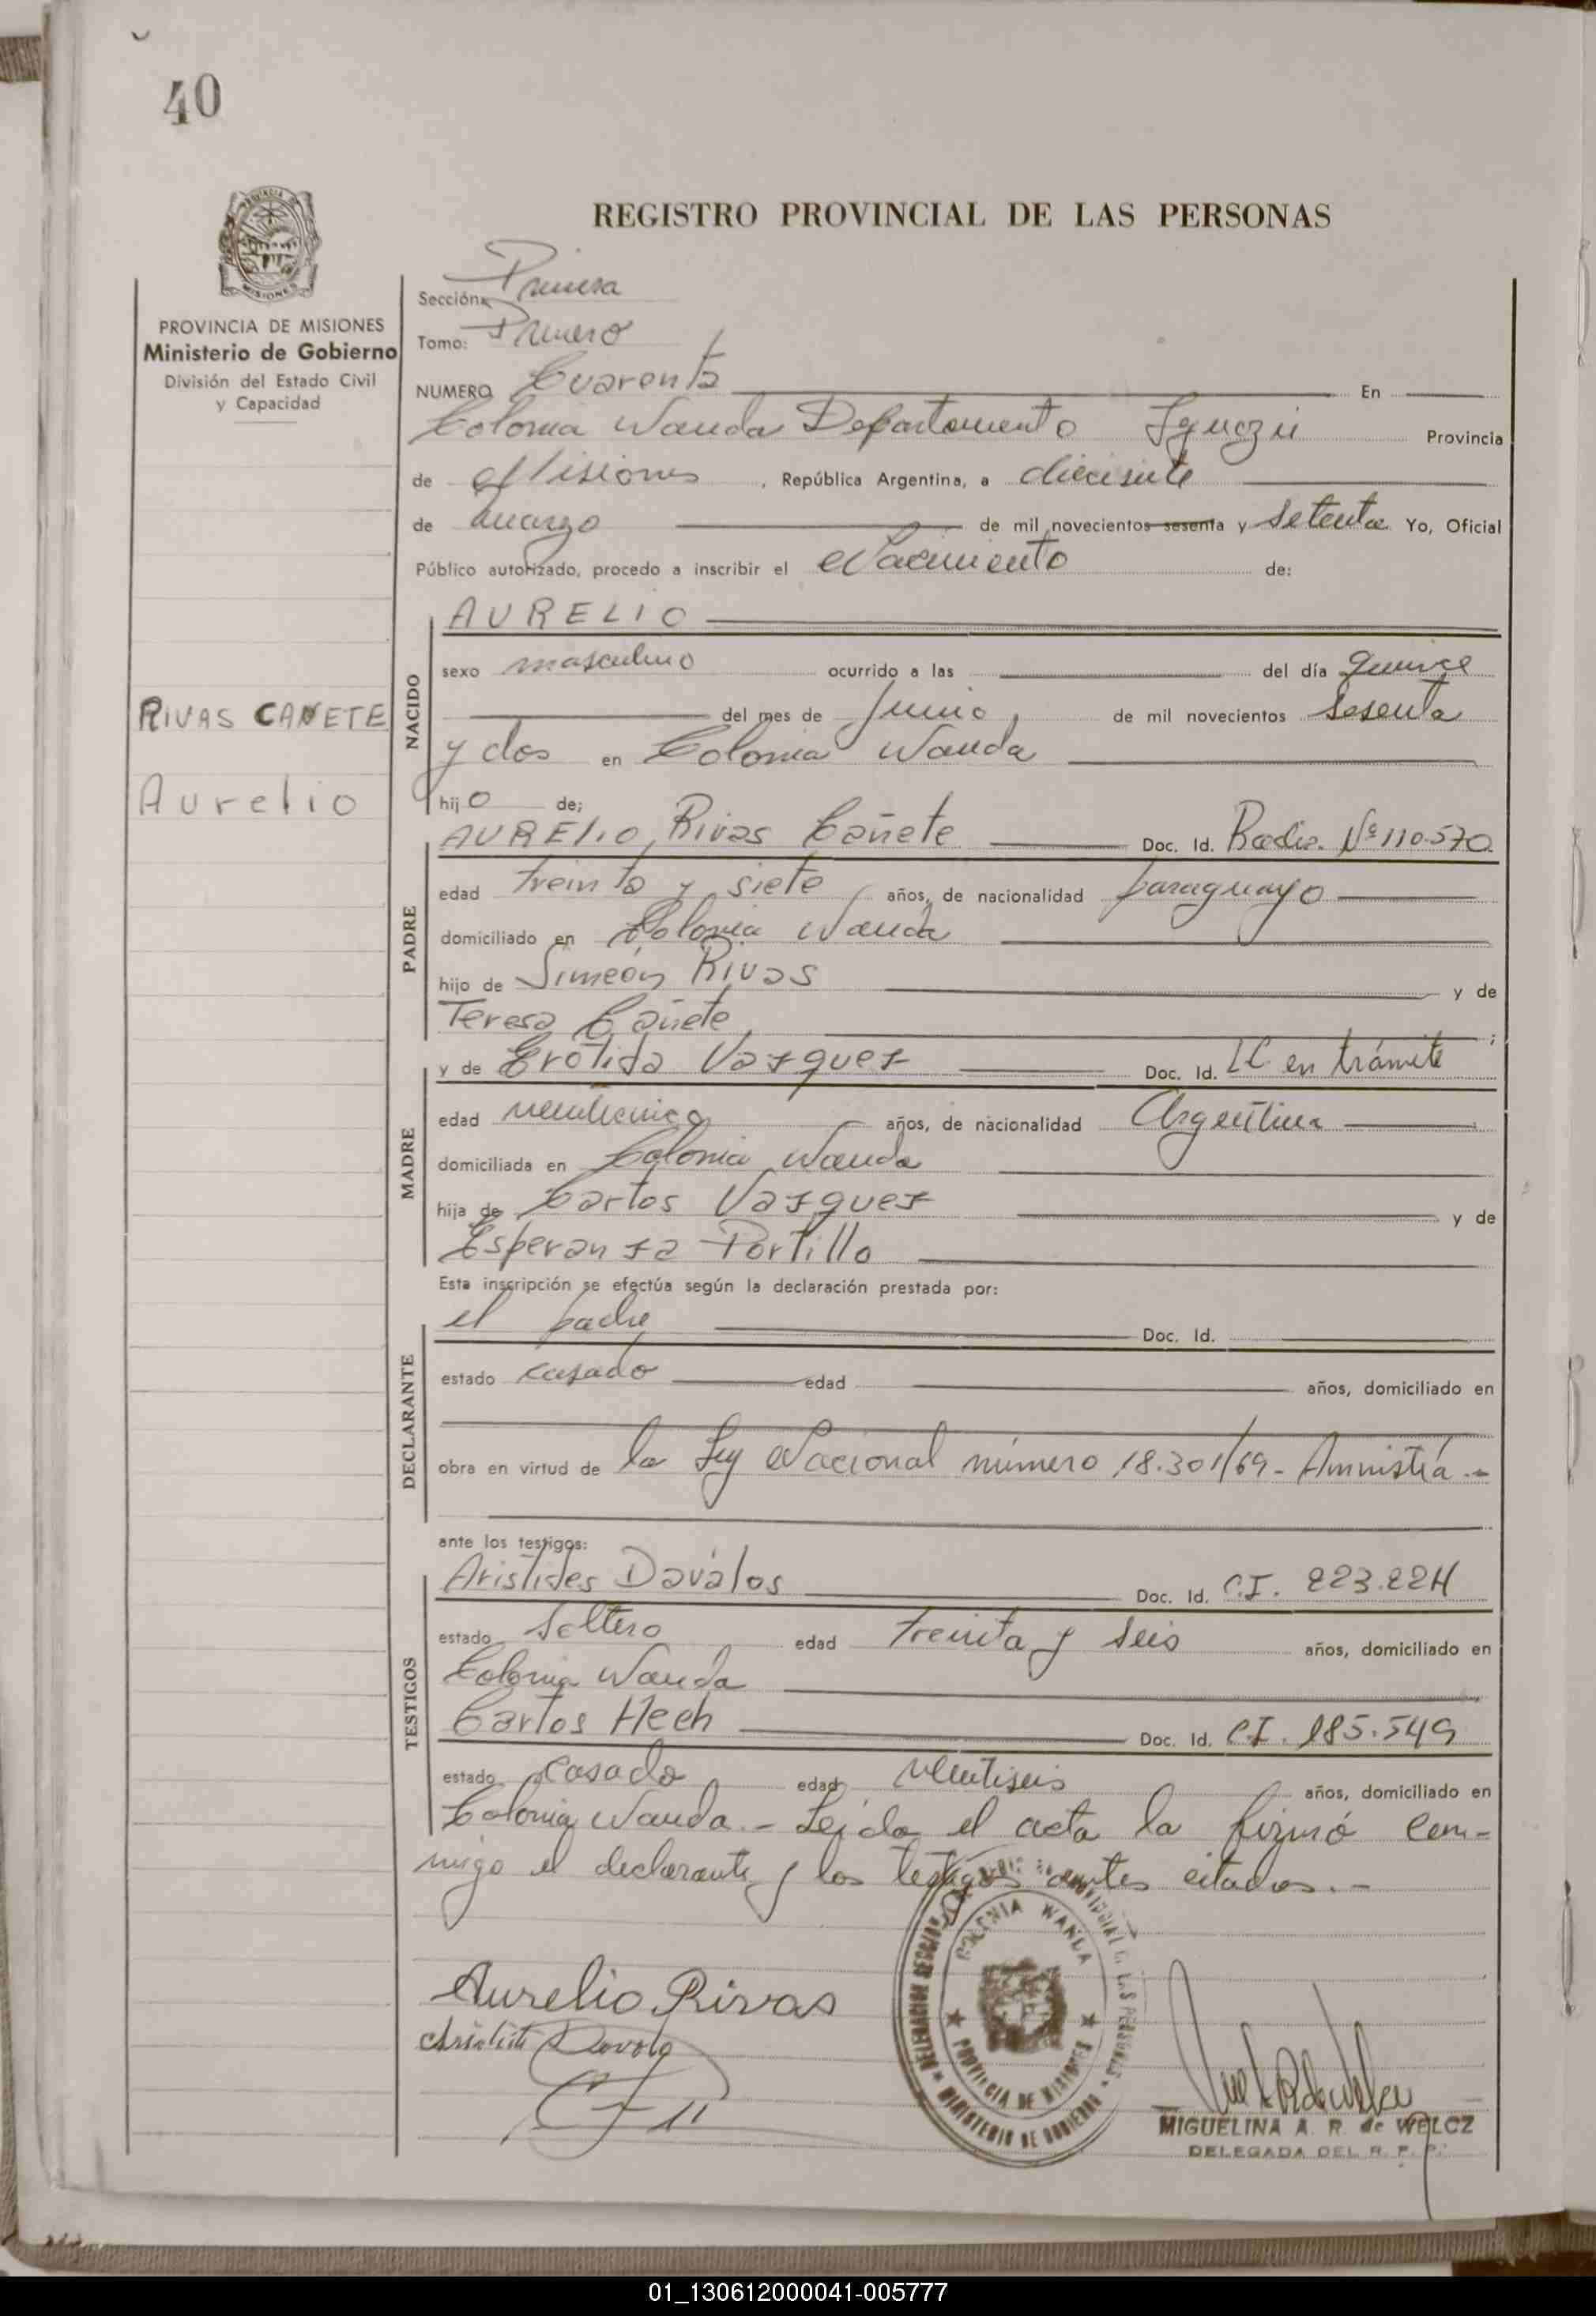 40
REGISTRO PROVINCIAL DE LAS PERSONAS
MISIONES
PROVINCIA DE MISIONES
Ministerio de Gobierno
División del Estado Civil
y Capacidad
RIVAS CAÑETE
Aurelio
Sección: Primera
Tomo: Primero
NUMERO Cuarenta En
Colonia Wanda Departamento Iguazú Provincia
de Misiones, República Argentina, a diecisiete
de marzo de mil novecientos sesenta y setenta Yo, Oficial
Público autorizado, procedo a inscribir el Nacimiento de:
NACIDO
AURELIO
sexo masculino ocurrido a las del día quince
del mes de Junio, de mil novecientos sesenta
y dos en Colonia Wanda
hijo de;
PADRE
AURELIO Rivas Cañete Doc. Id. Radic. Nº 110.570
edad treinta y siete años, de nacionalidad paraguayo
domiciliado en Colonia Wanda
hijo de Simeón Rivas y de
Teresa Cañete;
MADRE
y de Erótida Vazquez Doc. Id. LC en trámite
edad años, de nacionalidad Argentina
domiciliada en Colonia Wanda
hija de Carlos Vazquez y de
Esperanza Portillo
Esta inscripción se efectúa según la declaración prestada por:
DECLARANTE
el padre Doc. Id.
estado casado edad años, domiciliado en
obra en virtud de la Ley Nacional número 18.301/69- Amnistía.-
ante los testigos:
TESTIGOS
Aristides Dávalos Doc. Id. C.I. 223.224
estado soltero edad treinta y seis años, domiciliado en
Colonia Wanda
Carlos Hech Doc. Id. C.I. 185.549
estado casado edad veintiseis años, domiciliado en
Colonia Wanda.- Leída el acta la firmó con-
migo el declarante y los testigos antes citados.-
Aurelio Rivas
COLONIA WANDA
PROVINCIA DE MISIONES
MINISTERIO DE GOBIERNO
MIGUELINA A. R. de WELCZ
DELEGADA DEL R. P. P.
01_130612000041-005777